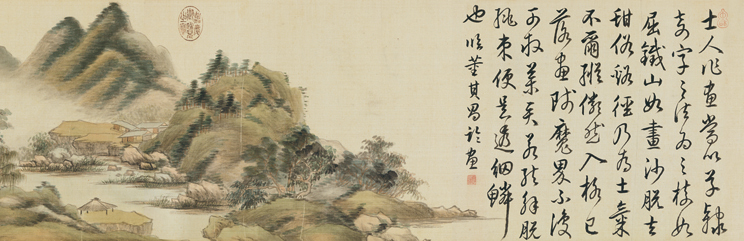 士人作畫當以草隸
奇字之法為之樹如
屈鐵山如畫沙絕去
甜俗蹊徑乃為士氣
不爾縱儼然入格已
落畫師魔界不復
可救藥矣若能解脫
繩束便是透網鱗
也臨董其昌論畫